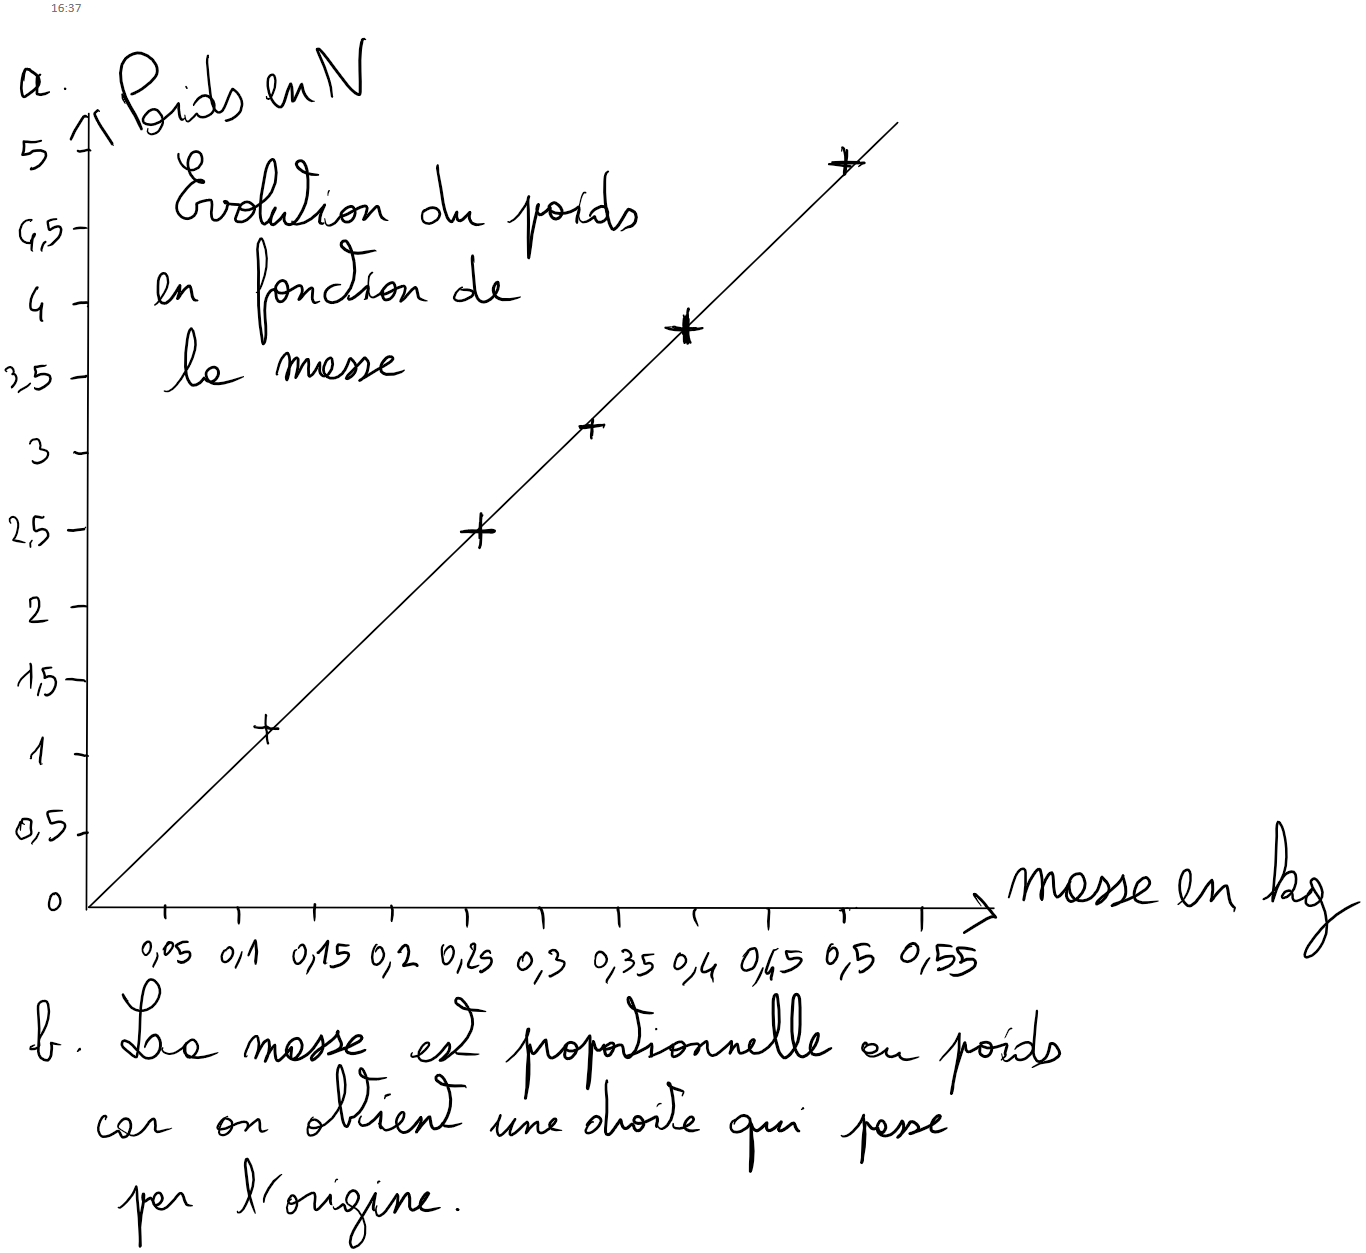 16:37
a. Poids en N
5
Evolution du poids
4,5
en fonction de
4
la masse
3,5
3
2,5
2
1,5
1
0,5
masse en kg
0
0,05 0,1 0,15 0,2 0,25 0,3 0,35 0,4 0,45 0,5 0,55
b. La masse est proportionnelle au poids
car on obtient une droite qui passe
par l'origine.